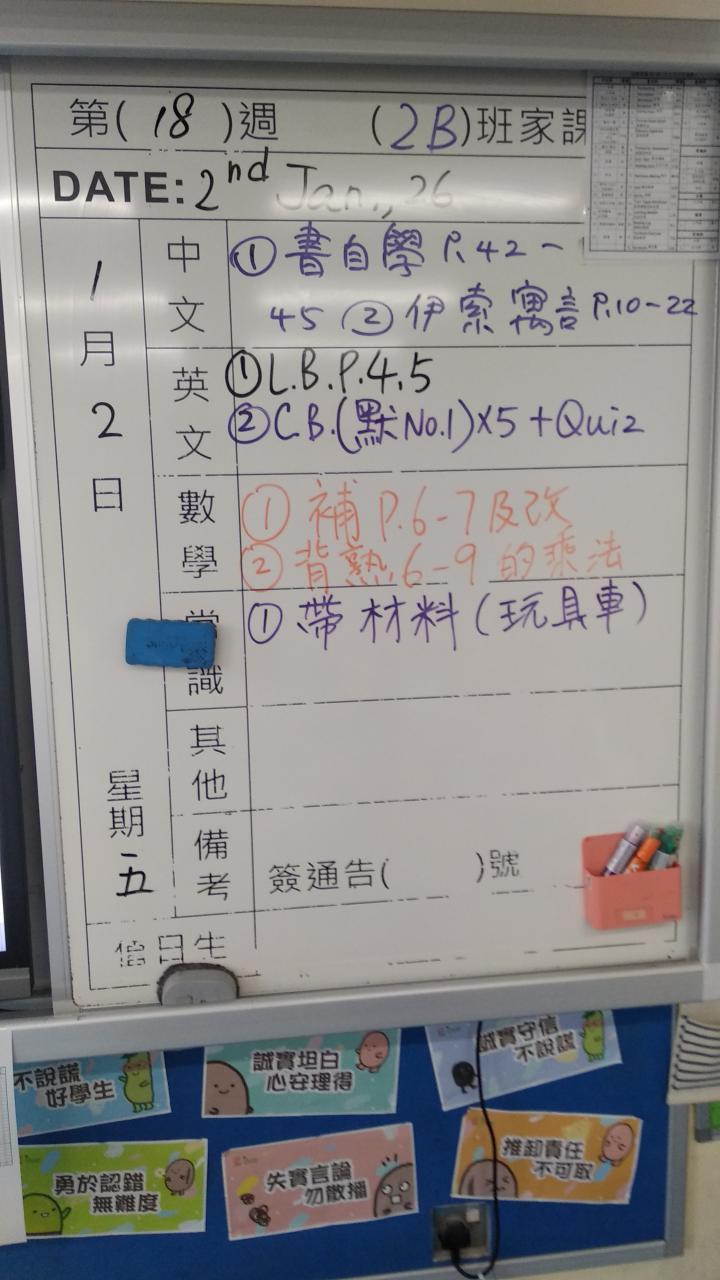 第( 18 )週 (2B)班家課
DATE: 2nd Jan., 26
1月2日
星期五
中文
① 書自學 P.42-
45 ② 伊索寓言 P.10-22
英文
① L.B.P.4,5
② C.B.(默No.1)x5 + Quiz
數學
① 補 P.6-7及改
② 背熟 6-9 的乘法
常識
① 帶材料(玩具車)
其他
備考
簽通告( )號
值日生
不說謊
好學生
誠實坦白
心安理得
誠實守信
不說謊
勇於認錯
無難度
失實言論
勿散播
推卸責任
不可取